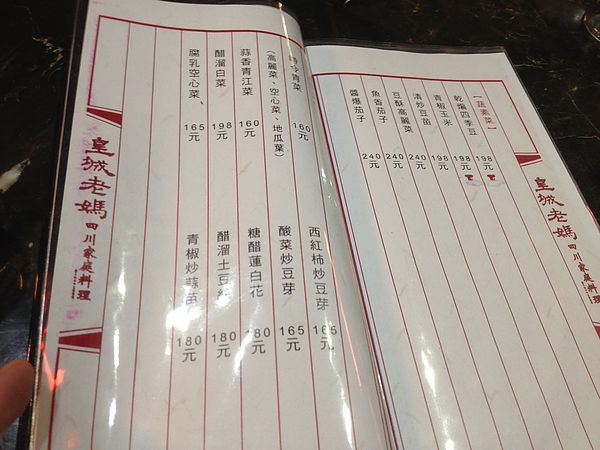 【蔬素菜】
乾煸四季豆 198元
青椒玉米 198元
清炒豆苗 240元
豆酥高麗菜 240元
魚香茄子 240元
醬爆茄子 240元
皇城老媽 四川家庭料理
時令青菜 160元
(高麗菜、空心菜、地瓜葉)
蒜香青江菜 160元
醋溜白菜 198元
腐乳空心菜、 165元
西紅柿炒豆芽 165元
酸菜炒豆芽 165元
糖醋蓮白花 180元
醋溜土豆絲 180元
青椒炒蒜苗 180元
皇城老媽 四川家庭料理